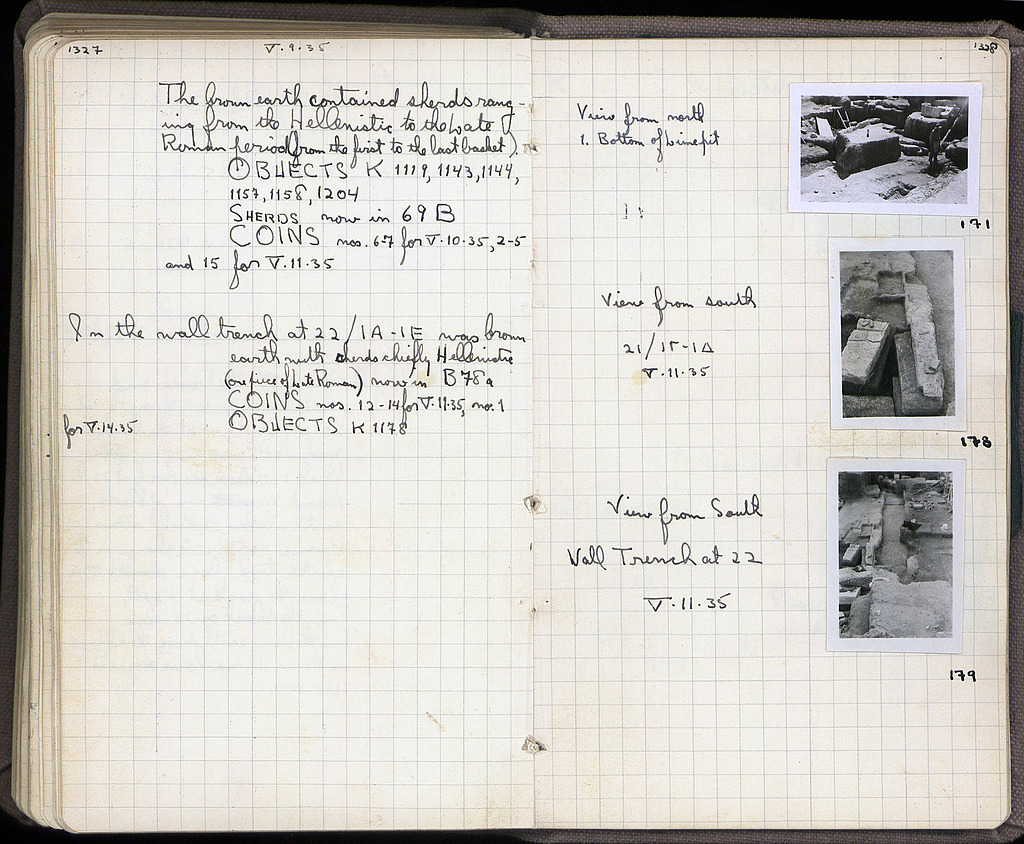 1327
V·9·35
The brown earth contained sherds rang-
ing from the Hellenistic to the Late
Roman period (from the first to the last basket).
OBJECTS K 1119, 1143, 1144,
1157, 1158, 1204
SHERDS now in 69 B
COINS nos. 6-7 for V·10·35, 2-5
and 15 for V·11·35
In the wall trench at 22/1A-1E was brown
earth with sherds chiefly Hellenistic
(one piece of Late Roman) now in B 78a
COINS nos. 12-14 for V·11·35, no. 1
for V·14·35
OBJECTS K 1178
1328
View from north
1. Bottom of Limepit
171
View from south
21/ΙΓ-ΙΔ
V·11·35
178
View from South
Wall Trench at 22
V·11·35
179